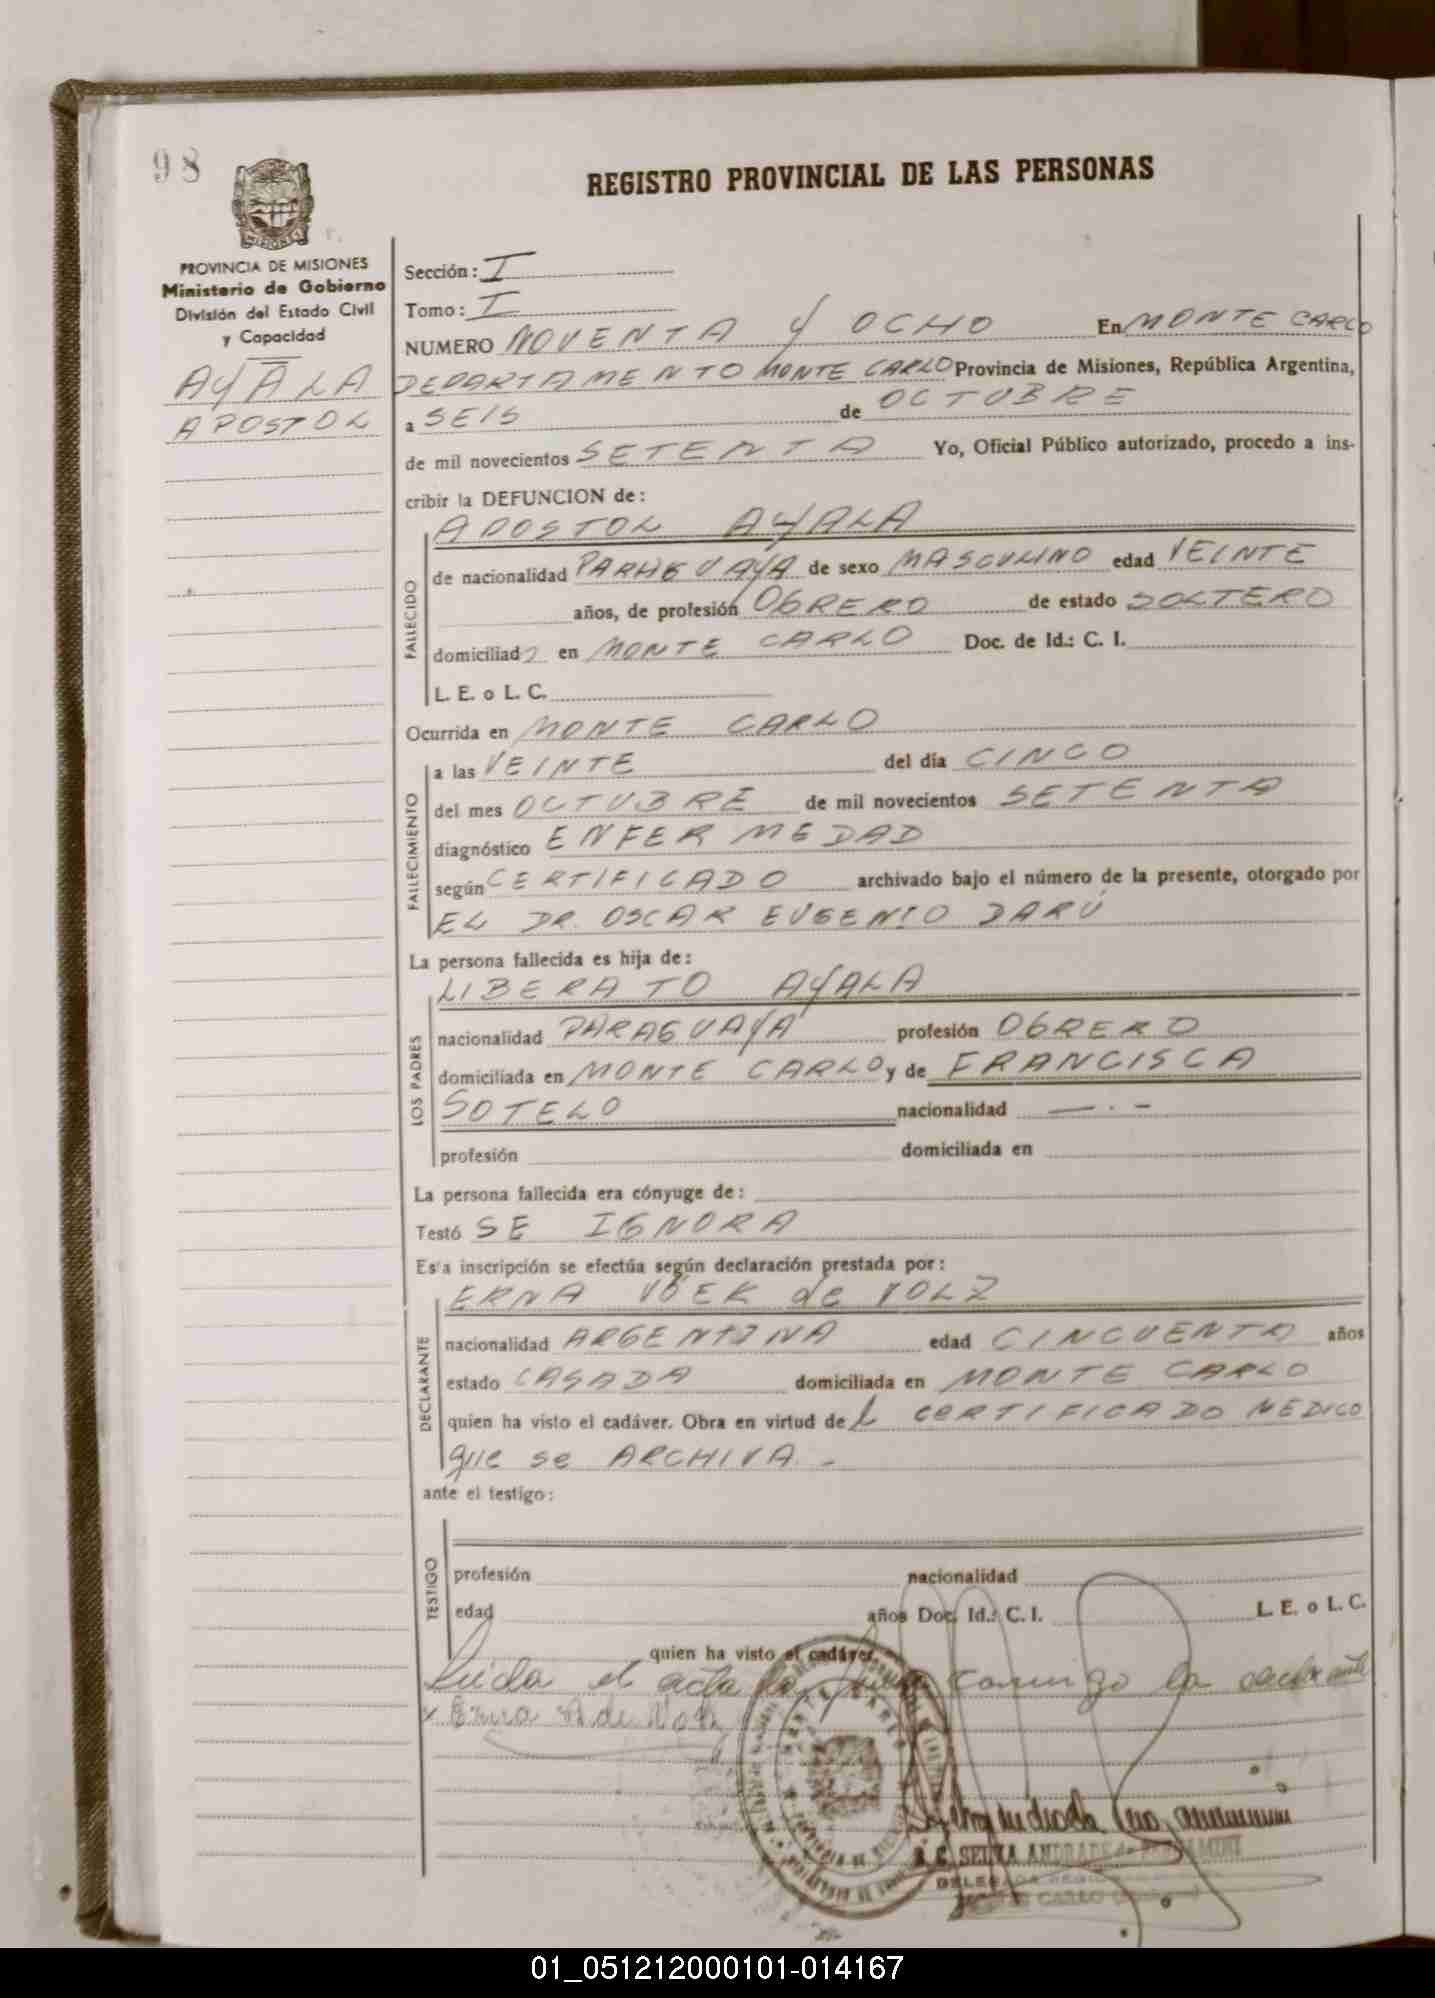 98
REGISTRO PROVINCIAL DE LAS PERSONAS
MISIONES
PROVINCIA DE MISIONES
Ministerio de Gobierno
División del Estado Civil
y Capacidad
AYALA
APOSTOL
Sección: I
Tomo: I
NUMERO NOVENTA Y OCHO En MONTE CARLO
DEPARTAMENTO MONTE CARLO Provincia de Misiones, República Argentina,
a SEIS de OCTUBRE
de mil novecientos SETENTA Yo, Oficial Público autorizado, procedo a ins-
cribir la DEFUNCION de:
FALLECIDO
APOSTOL AYALA
de nacionalidad PARAGUAYA de sexo MASCULINO edad VEINTE
años, de profesión OBRERO de estado SOLTERO
domiciliado en MONTE CARLO Doc. de Id.: C. I.
L. E. o L. C.
Ocurrida en MONTE CARLO
FALLECIMIENTO
a las VEINTE del día CINCO
del mes OCTUBRE de mil novecientos SETENTA
diagnóstico ENFERMEDAD
según CERTIFICADO archivado bajo el número de la presente, otorgado por
EL DR. OSCAR EUGENIO DARÚ
La persona fallecida es hija de:
LOS PADRES
LIBERATO AYALA
nacionalidad PARAGUAYA profesión OBRERO
domiciliada en MONTE CARLO y de FRANCISCA
SOTELO nacionalidad — . –
profesión domiciliada en
La persona fallecida era cónyuge de:
Testó SE IGNORA
Esta inscripción se efectúa según declaración prestada por:
DECLARANTE
ERNA VÖEK de VOLZ
nacionalidad ARGENTINA edad CINCUENTA años
estado CASADA domiciliada en MONTE CARLO
quien ha visto el cadáver. Obra en virtud del CERTIFICADO MEDICO
que se ARCHIVA. -
ante el testigo:
TESTIGO
profesión nacionalidad
edad años Doc. Id.: C. I. L. E. o L. C.
quien ha visto el cadáver.
Leída el acta la firma conmigo la declarante
x Erna de Volz
SELVA ANDRADE de
01_051212000101-014167